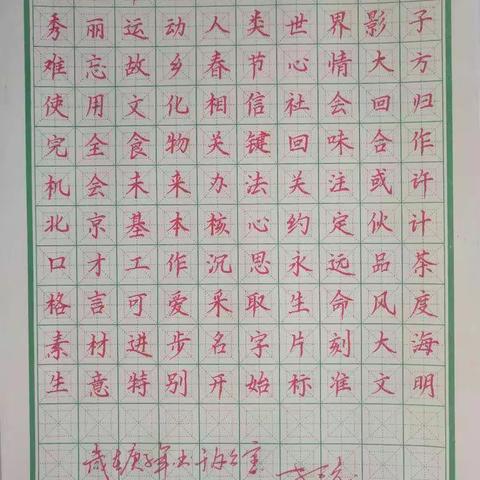 秀丽运动人类世界影子
难忘故乡春节心情大方
使用文化相信社会回归
完全食物关键回味合作
机会未来办法关注或许
北京基本核心约定伙计
口才工作沉思永远品茶
格言可爱采取生命风度
素材进步名字片刻大海
生意特别开始标准文明